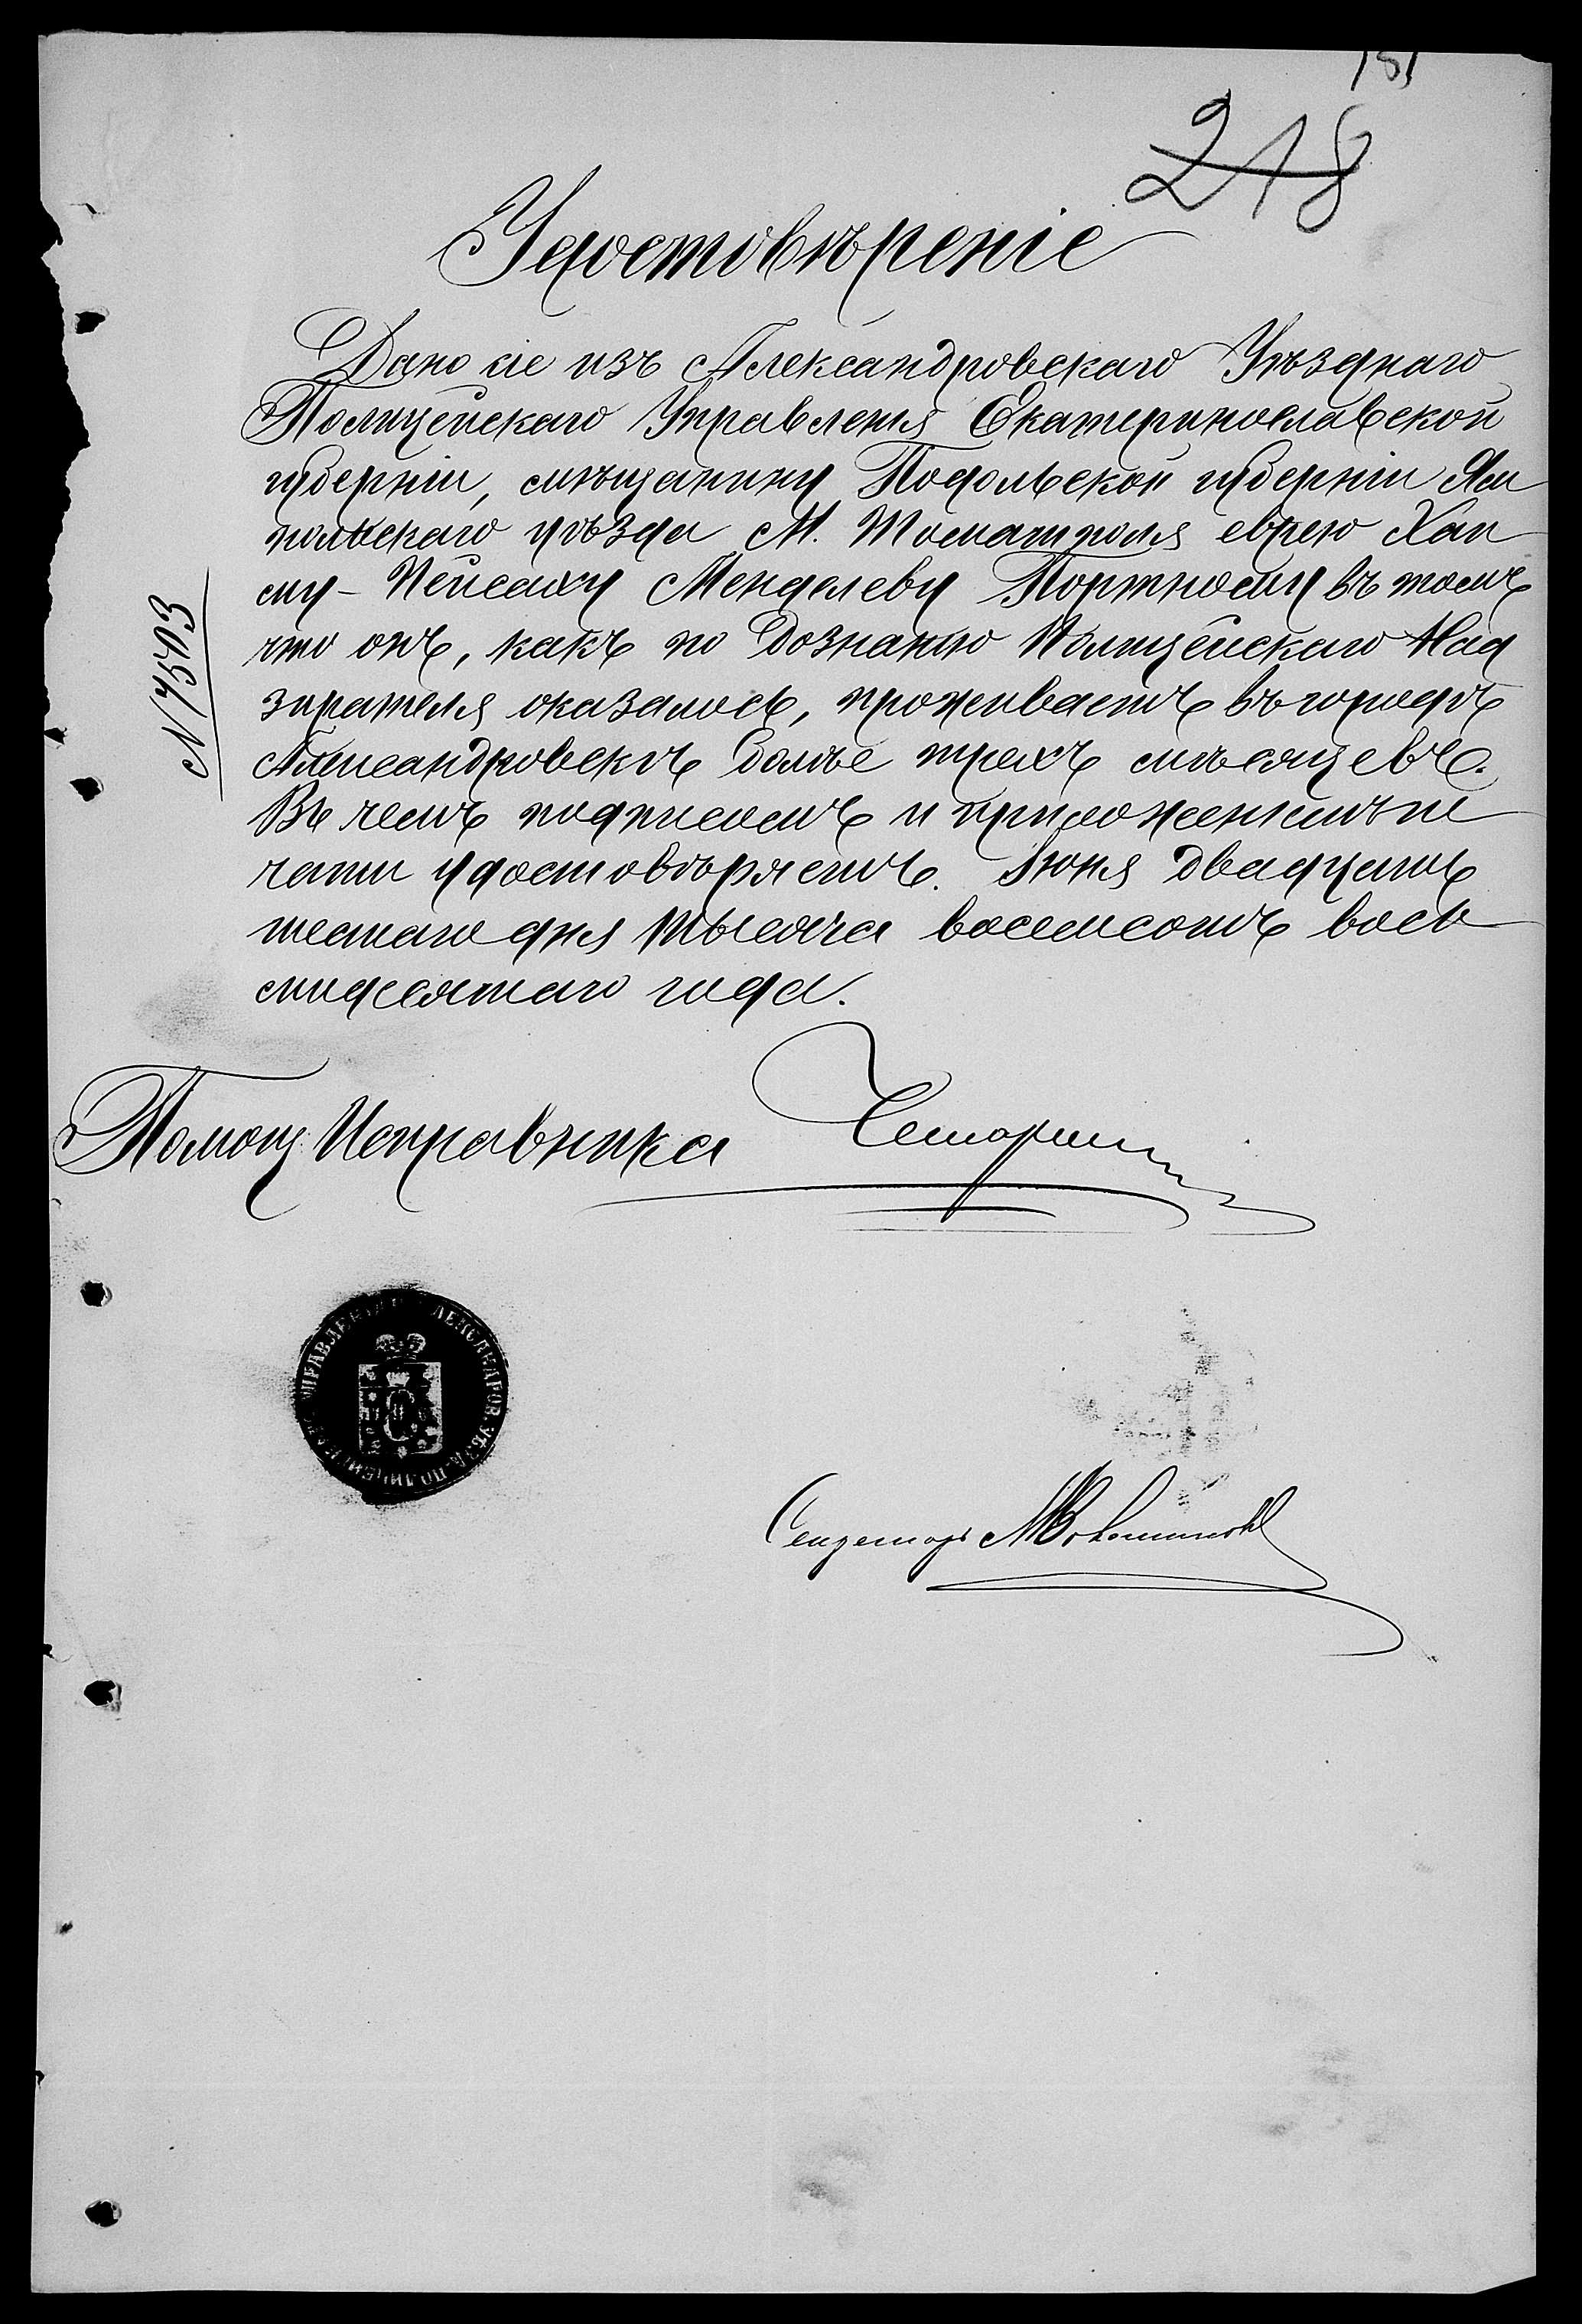 181
218
Удостовѣреніе
Дано сіе изъ Александровскаго Уѣзднаго
Полицейскаго Управленія Екатеринославской
губерніи, мѣщанину Подольской губерніи Ям
польскаго уѣзда М. Томашполя еврею Хаи
му-Пейсаху Менделеву Портному въ томъ
что онъ, какъ по дознанію Полицейскаго Над
зирателя оказалось, проживаетъ въ городѣ
Александровскѣ болѣе трехъ мѣсяцевъ.
Въ чемъ подписомъ и приложеніемъ пе
чати удостовѣряетъ. Іюня двадцать
шестаго дня тысяча восемсотъ вось
мидесятаго года.
N 7503
Помощ. Исправника
УПРАВЛЕНІЯ АЛЕКСАНДРОВ. УѢЗД. ПОЛИЦЕЙСКАГО
Секретарь